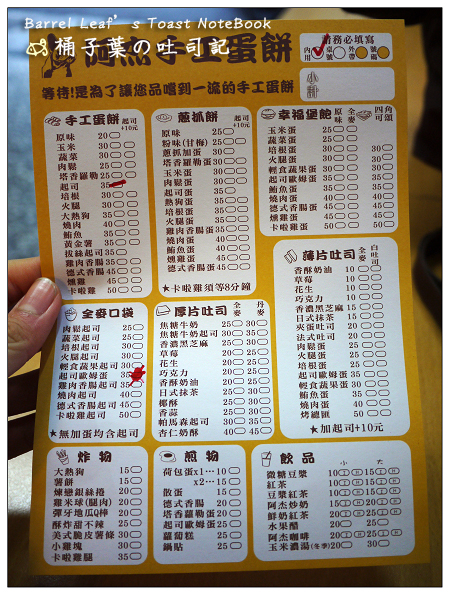 Barrel Leaf's Toast NoteBook
桶子葉の吐司記
阿杰手工蛋餅
請務必填寫
內用 桌號 外帶 號碼
小計
等待!是為了讓您品嚐到一流的手工蛋餅
手工蛋餅 起司+10元
原味 20
玉米 30
蔬菜 30
塔香羅勒 25
肉鬆 30
起司 35
培根 30
火腿 30
大熱狗 35
燒肉 40
鮪魚 35
黃金薯 35
拔絲起司 35
雞肉香腸 35
德式香腸 45
燻雞 45
卡啦雞 50
蔥抓餅 起司+10元
原味 25
粉味(甘梅) 25
蔥抓加蛋 30
塔香羅勒蛋 30
玉米蛋 35
肉鬆蛋 35
起司蛋 35
熱狗蛋 35
培根蛋 35
火腿蛋 35
雞肉香腸蛋 40
燒肉蛋 40
鮪魚蛋 40
德式香腸蛋 45
燻雞蛋 45
★卡啦雞須等8分鐘
幸福堡飽 原味 全麥 四角可頌
玉米蛋
蔬菜蛋
培根蛋
火腿蛋
輕食蔬果蛋
起司歐姆蛋
鮪魚蛋
燒肉蛋
德式香腸蛋
燻雞蛋
卡啦雞蛋
薄片吐司 全麥 白吐司
香酥奶油 10
草莓 10
花生 10
巧克力 10
香濃黑芝麻
日式抹茶
夾蛋吐司
法式吐司
肉鬆蛋
培根蛋
火腿蛋
起司歐姆蛋
輕食蔬果蛋
鮪魚蛋
燒肉蛋
烤總匯
★加起司+10元
全麥口袋
肉鬆起司 25
蔬菜起司 25
培根起司 25
火腿起司 30
輕食蔬果起司 30
起司歐姆蛋 30
雞肉香腸起司 35
燒肉起司 40
德式香腸起司 45
卡啦雞起司 50
★無加蛋均含起司
厚片吐司 全麥 丹麥
焦糖牛奶 25 30
焦糖牛奶起司 30 35
香濃黑芝麻 25 30
草莓 20 25
花生 20 25
巧克力 20 25
香酥奶油 20 25
日式抹茶 25 30
椰酥 25 30
香蒜 25 30
帕馬森起司 30 35
杏仁奶酥 40 45
炸物
大熱狗 15
薯餅 15
煉戀銀絲捲 20
雞米球(腿肉) 20
彈牙地瓜Q棒 20
酥炸甜不辣 25
美式脆皮薯條 30
小雞塊 30
卡啦雞腿 35
煎物
荷包蛋x1… 10
x2… 15
散蛋 15
德式香腸 20
塔香羅勒蛋 20
起司歐姆蛋 25
蘿蔔糕 25
鍋貼 25
飲品 小 大
微糖豆漿 10 15
紅茶 10 15
豆漿紅茶 10 15
阿杰炒奶 15 20
鮮奶紅茶 15 20
水果醋 20
阿杰咖啡 20
玉米濃湯(冬季) 20